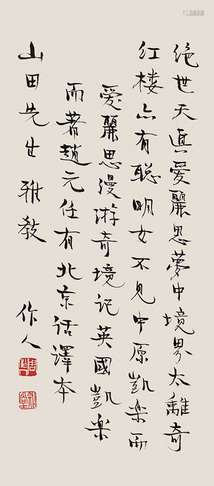 绝世天真爱麗思夢中境界太離奇
红楼亦有聡明女不見中原凱樂而
愛麗思漫游奇境记英國凱樂
而著趙元任有北京话译本
山田先生雅教
作人